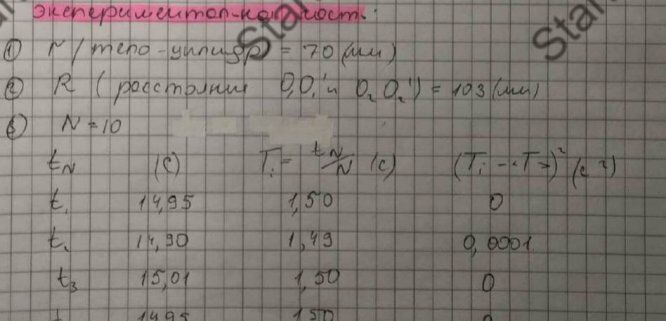 экспериментал-ная част:
① r (тело-цилидр) = 70 (мм)
② R (расстояние O₁O₁' и O₂O₂') = 103 (мм)
③ N = 10
t_N (c) T_i = t_N/N (c) (T_i - <T>)² (c²)
t₁ 14,95 1,50 0
t₂ 14,90 1,49 0,0001
t₃ 15,01 1,50 0
14,95 1,50 0